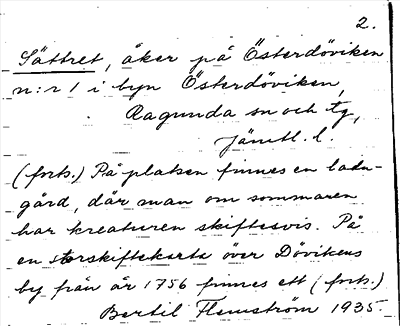 2.
Sättret, åker på Österdöviken
n:r 1 i byn Österdöviken,
Ragunda sn och tg,
Jämtl. l.
(forts.) På platsen finnes en ladu-
gård, där man om sommaren
har kreaturen skiftesvis. På
en storskifteskarta över Dövikens
by från år 1756 finnes ett (forts.)
Bertil Flemström 1935.